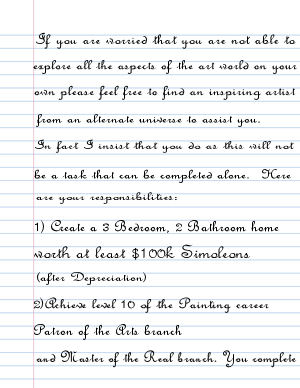 If you are worried that you are not able to
explore all the aspects of the art world on your
own please feel free to find an inspiring artist
from an alternate universe to assist you.
In fact I insist that you do as this will not
be a task that can be completed alone. Here
are your responsibilities:
1) Create a 3 Bedroom, 2 Bathroom home
worth at least $100k Simoleons
(after Depreciation)
2)Achieve level 10 of the Painting career
Patron of the Arts branch
and Master of the Real branch. You complete